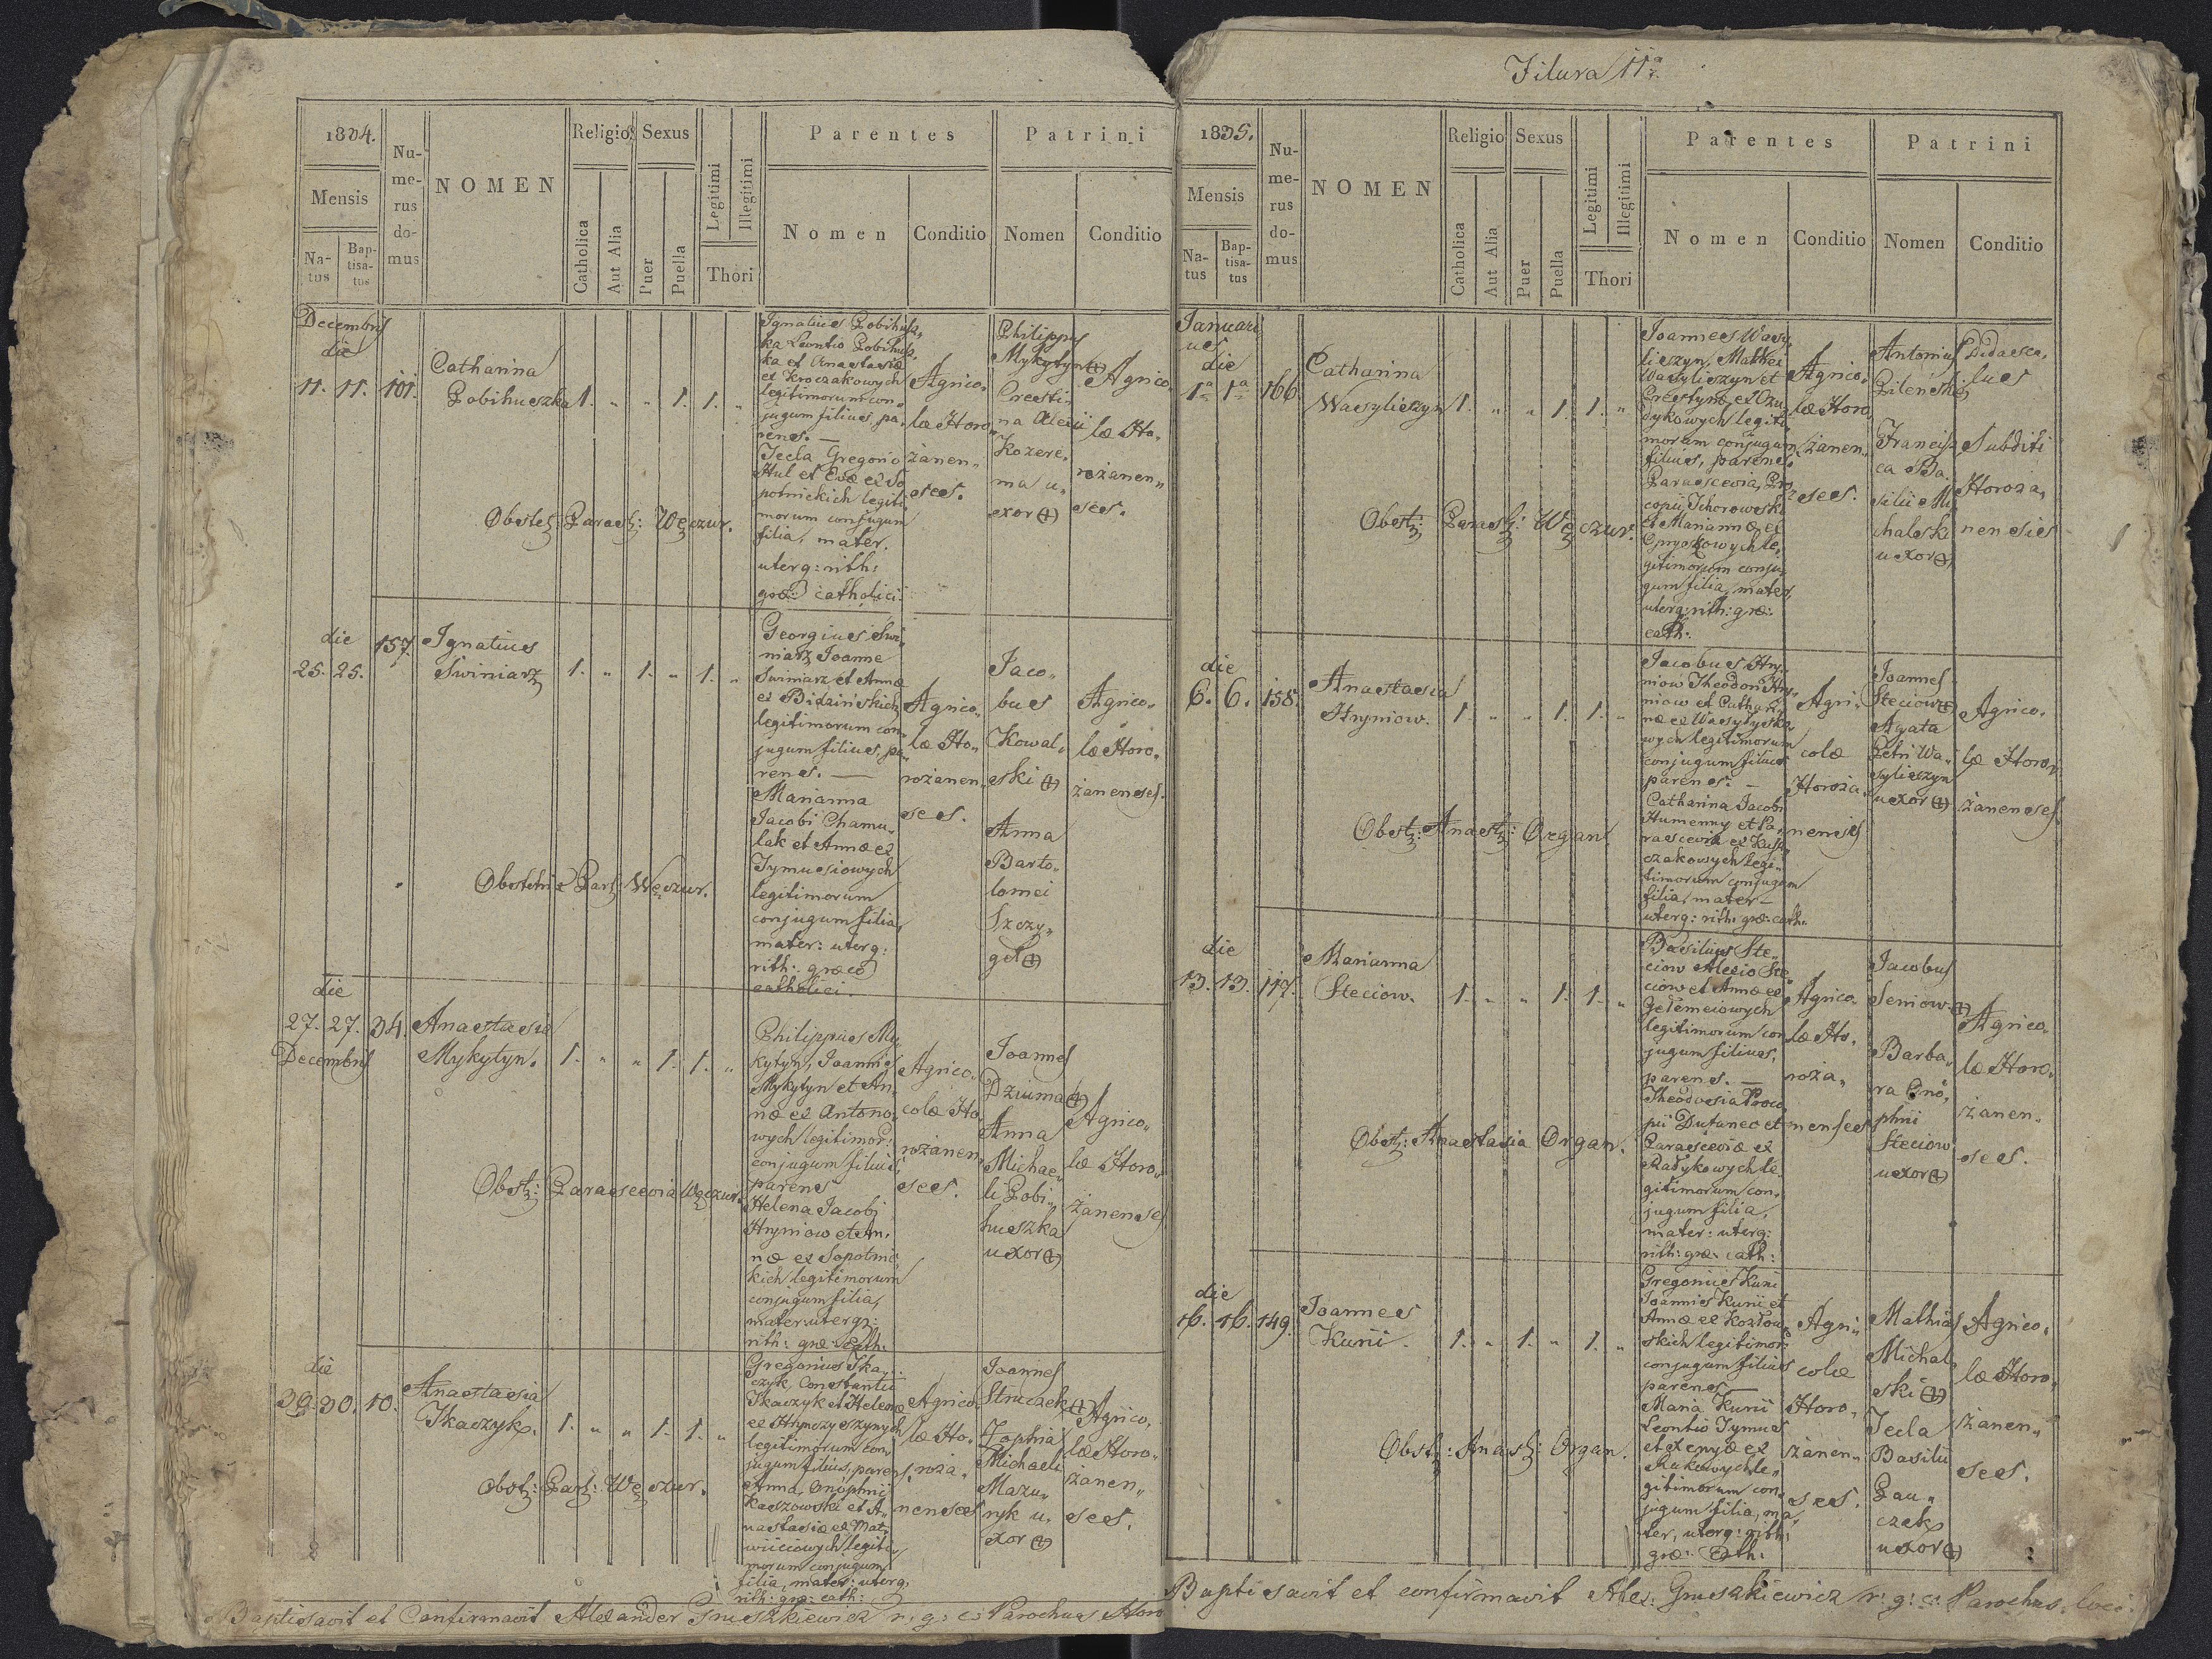 1834.
Mensis
Na-
tus
Bap-
tisa-
tus
Nu-
me-
rus
do-
mus
NOMEN
Religio
Catholica
Aut Alia
Sexus
Puer
Puella
Legitimi
Illegitimi
Thori
Parentes
Nomen
Conditio
Patrini
Nomen
Conditio
Decembris
die
11. 11. 101.
Catharina
Pobihuszka 1. „ „ 1. 1. „
Ignatius Pobihusz„
ka Leontio Pobihusz„
ka et Anastasiæ
ex Kroczakowych
legitimorum con„
jugum filius, pa„
rens. —
Tecla Gregorio
Hul et Evæ ex So
potnickich legiti„
morum conjugum
filia, mater,
uterq: rith:
græ: catholici
Agrico„
læ Horo
żanen„
ses.
Philippus
Mykytyn
Cresti„
na Alexii
Kozere„
ma u„
xor
Agrico
læ Ho„
rożanen„
ses.
Obstet: Parasc: Węczur.
die
25. 25. 157.
Ignatius
Swiniarz 1. „ 1. „ 1. „
Georgius Swi„
niarz Joanne
Swiniarz et Annæ
ex Bidzińskich
legitimorum con„
jugum filius, pa„
rens. —
Marianna
Jacobi Chamu„
lak et Annæ ex
Tymusiowych
legitimorum
conjugum filia,
mater: uterq:
rith: græco
catholici.
Agrico„
læ Ho„
rożanen„
ses.
Jaco„
bus
Kowal„
ski
Anna
Barto„
lomei
Szczy„
gel
Agrico„
læ Horo„
żanenses.
Obstetrix Par: Węczur.
die
27. 27. 34.
Decembris
Anastasia
Mykytyn. 1. „ „ 1. 1. „
Philippus My„
kytyn, Joannis
Mykytyn et An„
næ ex Antono„
wych legitimor:
conjugum filius,
parens
Helena Jacobi
Hryniow et An„
næ ex Sopotnic„
kich legitimorum
conjugum filia,
mater: uterq:
rith: græ: cath:
Agrico„
colæ Ho„
rożanen„
ses.
Joannes
Dziuma
Anna
Michae„
li Pobi„
huszka
uxor
Agrico„
læ Horo„
żanenses
Obst: Parascevia Węczur.
die
30. 30. 10.
Anastasia
Tkaczyk. 1. „ „ 1. 1. „
Gregorius Tka„
czyk, Constantii
Tkaczyk et Helenæ
ex Hrynczyszynych
legitimorum con„
jugum filius, parens,
Anna, Onophrii
Kaszowski et A„
nastasiæ ex Mat„
wiiciowych legiti„
morum conjugum
filia, mater: uterq:
rith: græ: cath:
Agrico„
læ Ho„
roża„
nenses
Joannes
Struczek
Zophia
Michaeli
Mazu„
ryk u„
xor
Agrico„
læ Horo„
żanen„
ses.
Obst: Par: Węczur.
Baptisavit et Confirmavit Alexander Gruszkiewicz r: g: c: Parochus Horo
Filura 11a
1835.
Mensis
Na-
tus
Bap-
tisa-
tus
Nu-
me-
rus
do-
mus
NOMEN
Religio
Catholica
Aut Alia
Sexus
Puer
Puella
Legitimi
Illegitimi
Thori
Parentes
Nomen
Conditio
Patrini
Nomen
Conditio
Januari
us
die
1a 1a 166.
Catharina
Wasyliszyn 1. „ „ 1. 1. „
Joannes Wasy„
liszyn, Mathei
Wasyliszyn et
Crestynæ ex Dzu„
dykowych legiti„
morum conjugum
filius, parens.
Parascevia, Pro
copii Tchorowski
et Mariannæ ex
Opryskowych le„
gitimorum conju„
gum filia, mater,
uterq: rith: græ:
cath:
Agrico„
læ Horo
żanen„
ses.
Antonius
Pilenski
Francisz
ca Ba„
silii Mi„
chalski
uxor
Didasca„
lus
Subditi
Horoża„
nensies
Obst: Parasc: Węczur.
die
6. 6. 158.
Anastasia
Hryniow. 1. „ „ 1. 1. „
Jacobus Hry„
niow Theodori Hry„
niow et Cathari„
næ ex Wasylysko„
wych legitimorum
conjugum filius
parens. —
Catharina Jacobi
Humenny et Pa„
rasceviæ ex
czakowych legi„
timorum conjugum
filia, mater —
uterq: rith: græ: cath:
Agri„
colæ
Horoża„
nenses
Joannes
Steciow
Agata
Petri Wa„
syliszyn
uxor
Agrico„
læ Horo„
żanenses
Obst: Anast: Organ.
die
13. 13. 117.
Marianna
Steciow. 1. „ „ 1. 1. „
Basilius Ste„
ciow Alexio Ste„
ciow et Annæ ex
Gedemciowych
legitimorum con
jugum filius,
parens. —
Theodosia Proco„
pii Dutanec et
Parasceviæ ex
Radykowych le„
gitimorum con„
jugum filia,
mater: uterq:
rith: græ: cath:
Agrico„
læ Ho„
roża„
nenses
Jacobus
Seniow.
Barba„
ra Ono„
phrii
Steciow
uxor
Agrico„
læ Horo„
żanen„
ses.
Obst: Anastasia Organ.
die
16. 16. 149.
Joannes
Kunii. 1. „ 1. „ 1. „
Gregorius Kunii
Joannis Kunii et
Annæ ex Kozłow„
skich legitimor:
conjugum filius
parens —
Maria Kunii
Leontio Tymus
et Xenyæ ex
Rukowych le„
gitimorum con„
jugum filia, ma„
ter, uterq: rith:
græ: Cath:
Agri„
colæ
Horo„
żanen„
ses.
Mathias
Michal„
ski
Tecla
Basilii
Pau„
czak
uxor
Agrico„
læ Horo„
żanen„
ses.
Obst: Anast: Organ.
Baptisavit et confirmavit Alex: Gruszkiewicz r: g: c: Parochus loci.